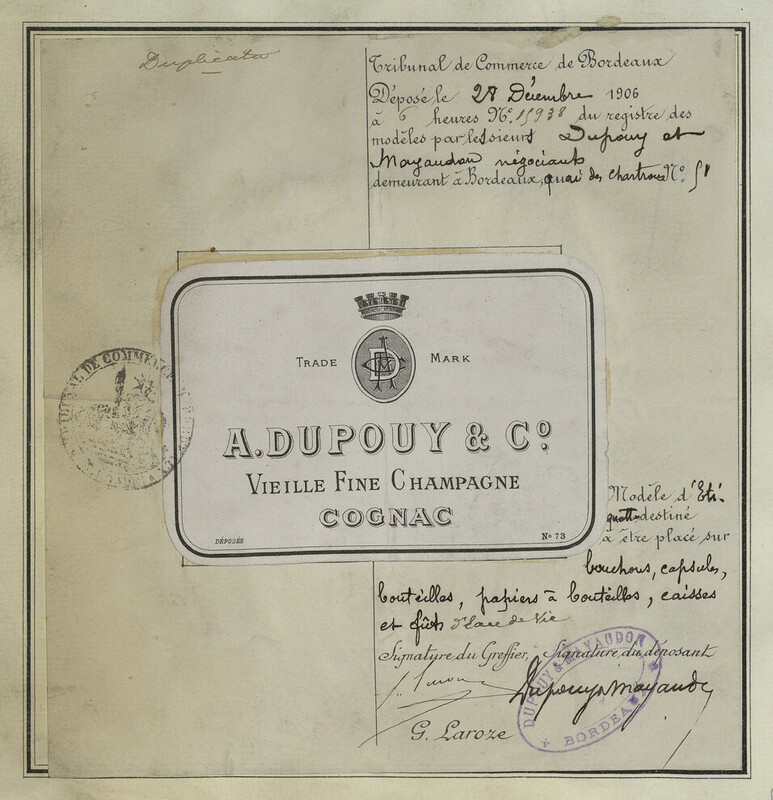 Duplicata
Tribunal de Commerce de Bordeaux
Déposé le 28 Décembre 1906
à 6 heures No. 15938 du registre des
modèles par les sieurs Dupouy et
Mayaudon négociants
demeurant à Bordeaux, quai des Chartrons No. 51
TRADE MARK
A. DUPOUY & Co.
VIEILLE FINE CHAMPAGNE
COGNAC
DÉPOSÉE No 73
TRIBUNAL DE COMMERCE
Modèle d'Eti-
quette destiné
à être placé sur
bouchons, capsules,
bouteilles, papiers à bouteilles, caisses
et fûts d'Eau de Vie
Signature du Greffier, Signature du déposant
Dupouy & Mayaudon
DUPOUY & MAYAUDON
BORDEAUX
G. Laroze